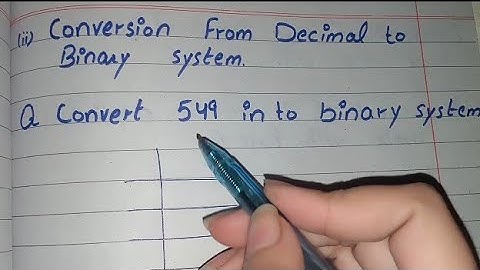 (ii) Conversion From Decimal to
Binary system.
Q Convert 549 in to binary system